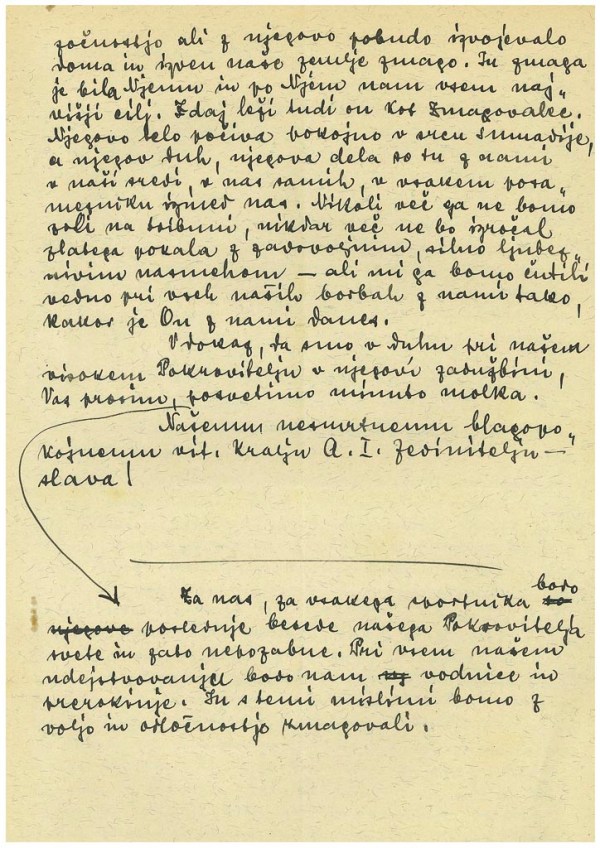 točnostjo ali z njegovo pobudo izvojevalo
doma in izven naše zemlje zmago. In zmaga
je bila Njemu in po Njem nam vsem naj„
višji cilj. Zdaj leži tudi on kot Zmagovalec.
Njegovo telo počiva pokojno v srcu Šumadije,
a njegov duh, njegova dela so tu z nami
v naši sredi, v nas samih, v vsakem posa„
mezniku izmed nas. Nikoli več ga ne bomo
na tribuni, nikdar več ne bo izročal
zlatega pokala z zadovoljnim, silno ljubez„
nivim nasmehom — ali mi ga bomo čutili
vedno pri vseh naših borbah z nami tako,
kakor je On z nami danes.
V dokaz, da smo v duhu pri našem
visokem Pokrovitelju v njegovi zadužbini,
Vas prosim, posvetimo minuto molka.
Našemu nesmrtnemu blagopo„
kojnemu vit. Kralju A. I. Zedinitelju —
slava!
Za nas, za vsakega sportnika bodo
njegove poslednje besede našega Pokrovitelja
svete in zato nepozabne. Pri vsem našem
udejstvovanju bodo nam vodnice in
prerokinje. In s temi mislimi bomo z
voljo in odločnostjo zmagovali.